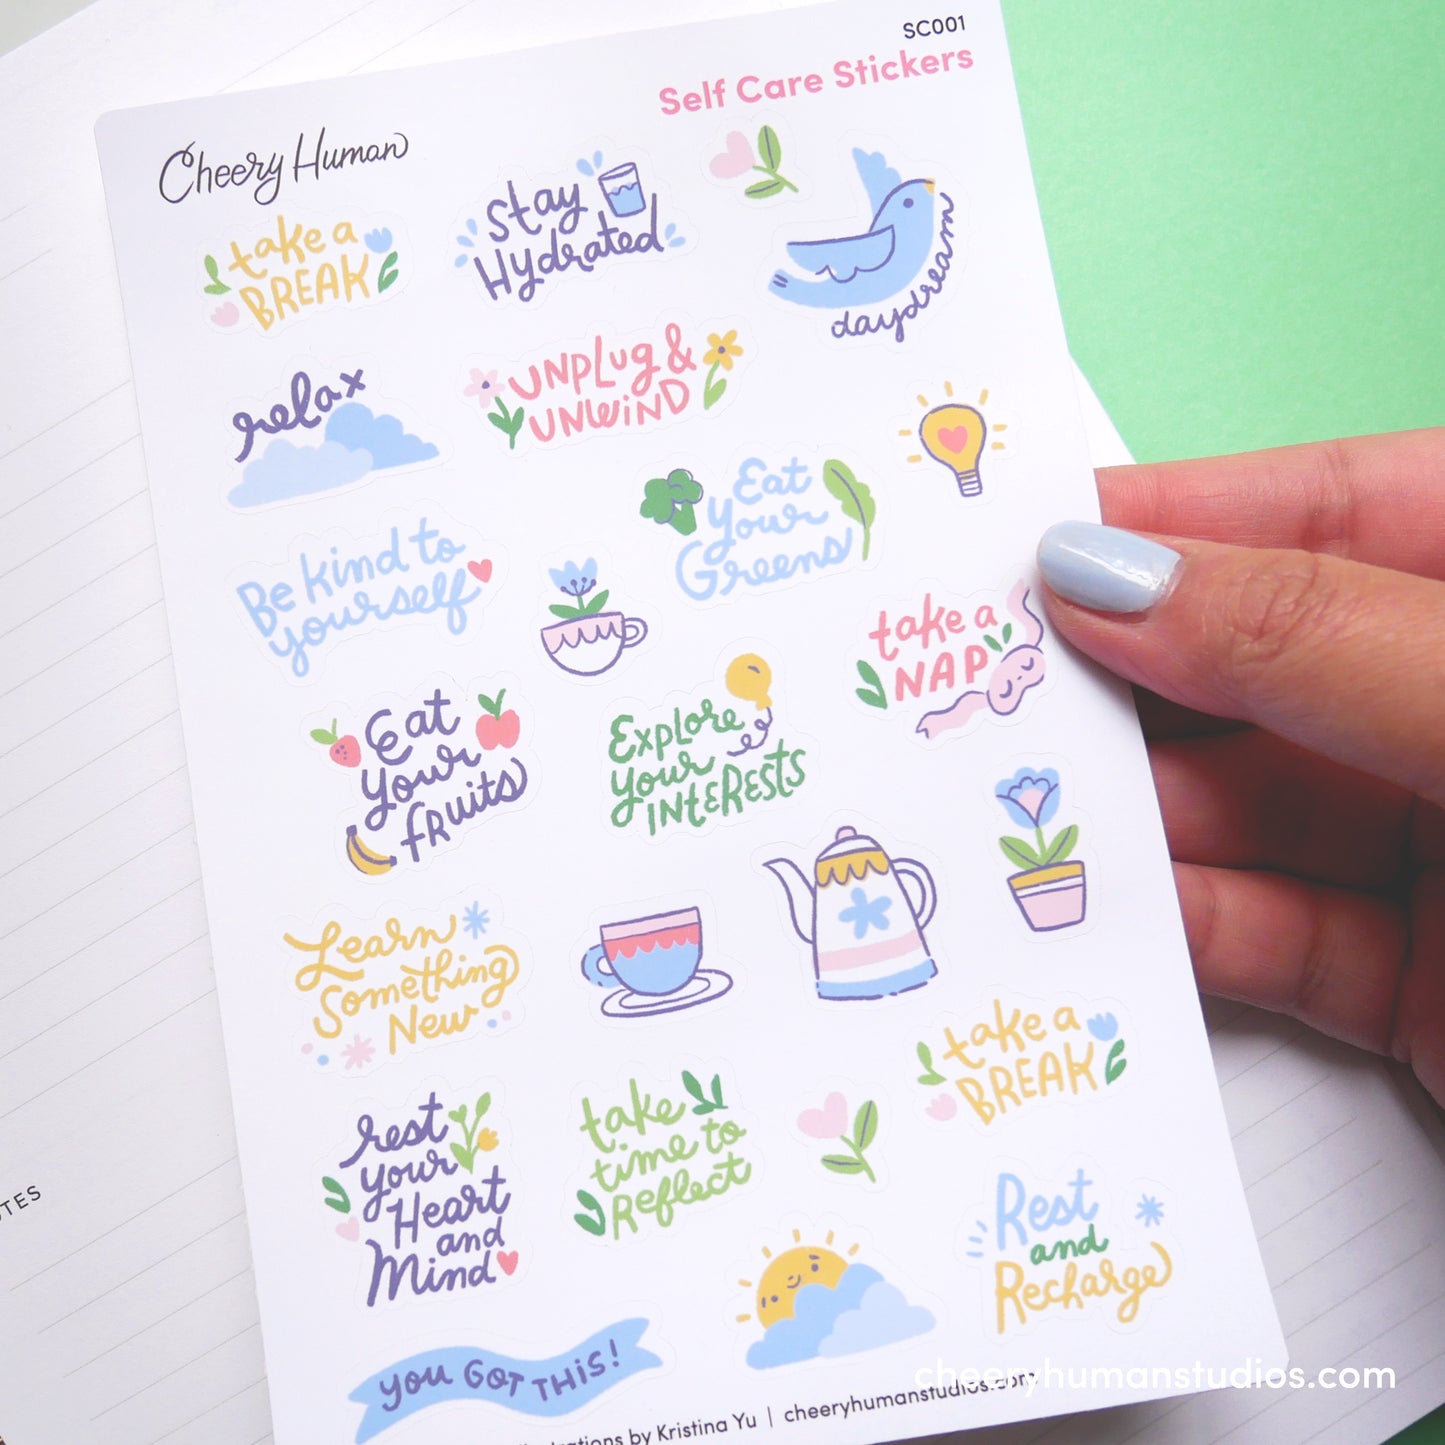 SC001
Self Care Stickers
Cheery Human
take a
BREAK
Stay
Hydrated
daydream
relax
UNPLUG &
UNWIND
Be kind to
yourself
Eat
your
Greens
take a
NAP
Eat
your
fruits
Explore
your
INtERESts
Learn
Something
New
take a
BREAK
rest
your
Heart
and
Mind
take
time to
Reflect
Rest
and
Recharge
you GOT THIS!
by Kristina Yu | cheeryhumanstudios.com
cheeryhumanstudios.com